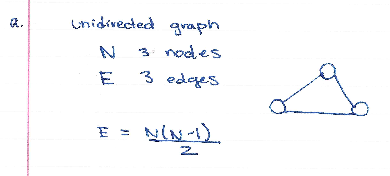 a. Unidirected graph
N 3 nodes
E 3 edges
E = N(N-1)
2